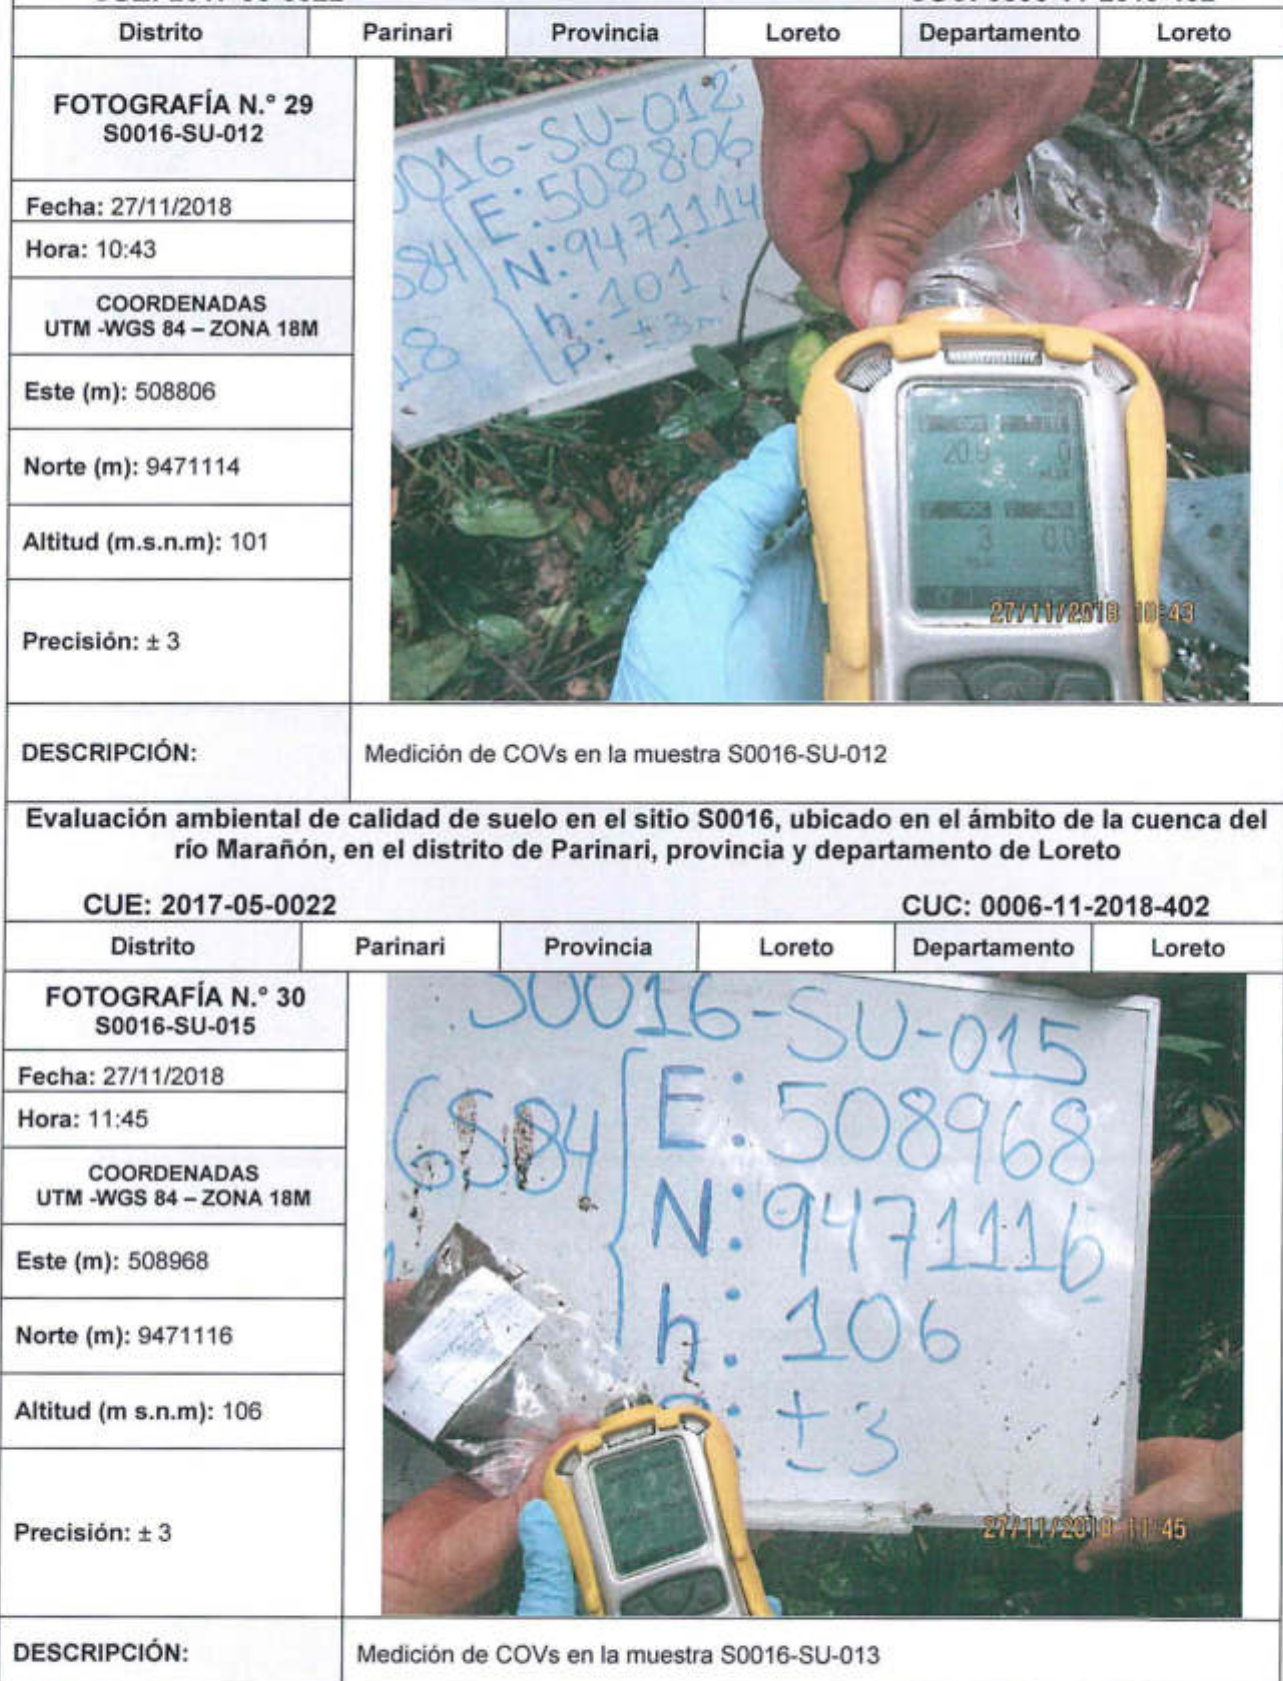 Distrito Parinari Provincia Loreto Departamento Loreto
FOTOGRAFÍA N.° 29
S0016-SU-012
Fecha: 27/11/2018
Hora: 10:43
COORDENADAS
UTM -WGS 84 – ZONA 18M
Este (m): 508806
Norte (m): 9471114
Altitud (m.s.n.m): 101
Precisión: ± 3
0016-SU-012
E: 508806
N: 9471114
h: 101
P: ±3m
20.9 0
3 0.0
27/11/2018 10:43
DESCRIPCIÓN: Medición de COVs en la muestra S0016-SU-012
Evaluación ambiental de calidad de suelo en el sitio S0016, ubicado en el ámbito de la cuenca del
río Marañón, en el distrito de Parinari, provincia y departamento de Loreto
CUE: 2017-05-0022 CUC: 0006-11-2018-402
Distrito Parinari Provincia Loreto Departamento Loreto
FOTOGRAFÍA N.° 30
S0016-SU-015
Fecha: 27/11/2018
Hora: 11:45
COORDENADAS
UTM -WGS 84 – ZONA 18M
Este (m): 508968
Norte (m): 9471116
Altitud (m s.n.m): 106
Precisión: ± 3
S0016-SU-015
6584 E: 508968
N: 9471116
h: 106
: ±3
27/11/2018 11:45
DESCRIPCIÓN: Medición de COVs en la muestra S0016-SU-013